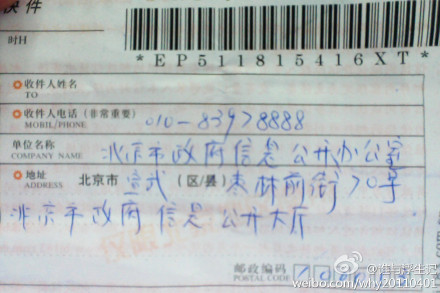 快件
时H
*EP511815416XT*
收件人姓名
TO
收件人电话(非常重要)
MOBIL/PHONE
010-83978888
单位名称
COMPANY NAME
北京市政府信息公开办公室
地址
ADDRESS
北京市 宣武 (区/县) 枣林前街70号
北京市政府信息公开大厅
邮政编码
POSTAL CODE
weibo.com/why20110401